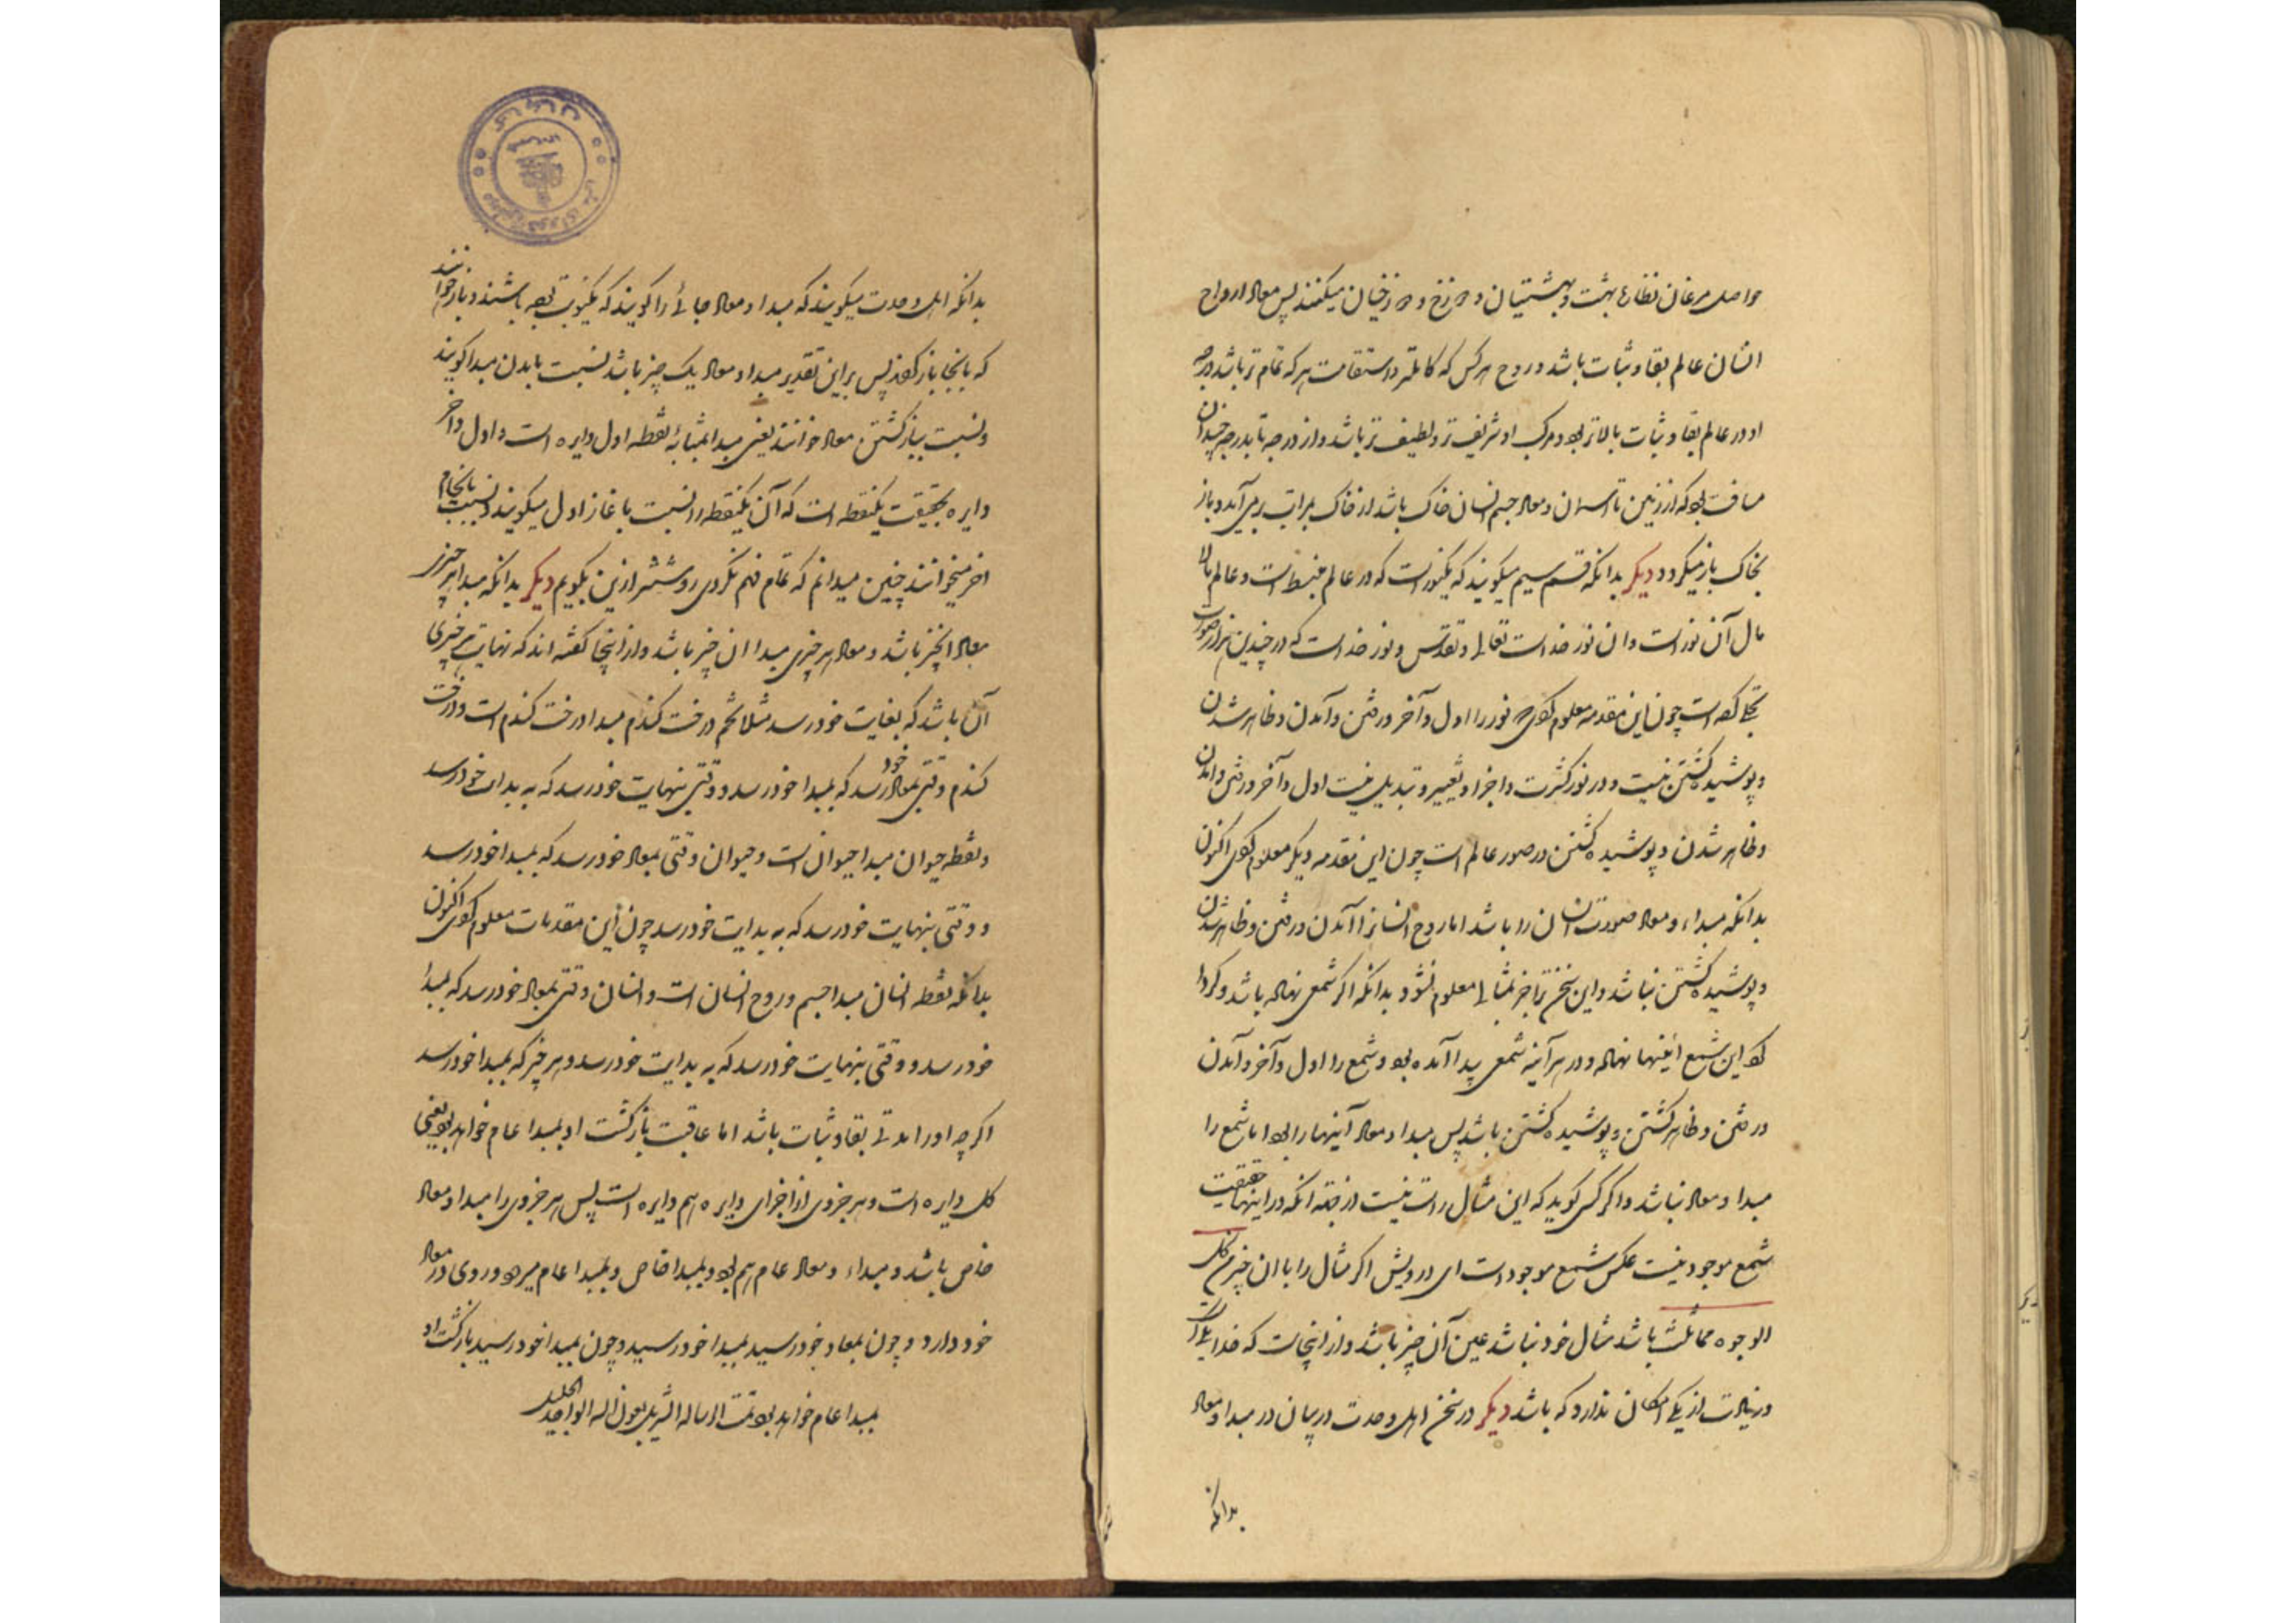 حواصل مرغان نظاره بهشت و بهشتیان و دوزخ و دوزخیان میکنند پس معاد ارواح
انسان عالم بقا و ثبات باشد و روح هر کس که کاملتر و استقامت هر که تمام تر باشد درجه
او در عالم بقا و ثبات بالاتر بود و مرکب او شریف تر و لطیف تر باشد و از درجه تا بدرجه چندان
مسافت بود که از زمین تا آسمان و معاد جسم انسان خاک باشد از خاک بمراتب برمی آید و باز
بخاک باز میگردد دیگر بدانکه قسم سیم میگویند که یکنور است که در عالم منبسط است و عالم مالا
مال آن نور است و ان نور خداست تعالی و تقدس و نور خداست که در چندین هزار صورت
تجلی کرده است چون این مقدمه معلوم کردی نور را اول و آخر و رفتن و آمدن و ظاهر شدن
و پوشیده گشتن نیست و در نور کثرت و اجزا و تغییر و تبدیل نیست اول و آخر و رفتن و امدن
و ظاهر شدن و پوشیده گشتن در صور عالم است چون این مقدمه دیگر معلوم کردی اکنون
بدانکه مبداء و معاد صورت انسان را باشد اما روح انسانرا آمدن و رفتن و ظاهر شدن
و پوشیده گشتن نباشد و این سخن ترا جز بمثالی معلوم نشود بدانکه اگر شمعی نهاده باشد و گردا
گرد این شمع آینها نهاده و در هر آینه شمعی پیدا آمده بود و شمع را اول و آخر و آمدن
و رفتن و ظاهر گشتن و پوشیده گشتن باشد پس مبدا و معاد آینها را بود اما شمع را
مبدا و معاد نباشد و اگر کسی گوید که این مثال راست نیست از جهة انکه در اینها حقیقت
شمع موجود نیست عکس شمع موجود است ای درویش اگر مثال را با ان چیز من کل
الوجوه مماثلت باشد مثال خود نباشد عین آن چیز باشد و از اینجاست که خدا یکی است
و زیادت از یکی امکان ندارد که باشد دیگر در سخن اهل وحدت در بیان در مبدا و معاد
بدانکه
بدانکه اهل وحدت میگویند که مبدا و معاد جائی را گویند که یکنوبت بوده باشند و باز خواهند
که بانجا باز گردند پس براین تقدیر مبدا و معاد یک چیز باشد نسبت بامدن مبدا گویند
و نسبت بباز گشتن معاد خوانند یعنی مبدا بمثابه نقطه اول دایره است و اول و آخر
دایره بحقیقت یکنقطه است که آن یکنقطه را نسبت باغاز اول میگویند و نسبت بانجام
اخر میخوانند چنین میدانم که تمام فهم نکردی روشنتر ازین بگویم دیگر بدانکه مبدا هر چیز
معاد انچیز باشد و معاد هر چیزی مبدا ان چیز باشد و از اینجا گفته اند که نهایت هر چیزی
آن باشد که بغایت خود رسد مثلا تخم درخت گندم مبدا درخت گندم است و درخت
گندم وقتی بمعاد خود رسد که بمبدا خود رسد و وقتی بنهایت خود رسد که به بدایت خود رسد
و نطفه حیوان مبدا حیوان است و حیوان وقتی بمعاد خود رسد که بمبدا خود رسد
و وقتی بنهایت خود رسد که به بدایت خود رسد چون این مقدمات معلوم کردی اکنون
بدانکه نطفه انسان مبدا جسم و روح انسان است و انسان وقتی بمعاد خود رسد که بمبدا
خود رسد و وقتی بنهایت خود رسد که به بدایت خود رسد و هر چیز که بمبدا خود رسد
اگر چه او را مدتی بقا و ثبات باشد اما عاقبت بازگشت او بمبدا عام خواهد بود یعنی
کل دایره است و هر جزوی از اجزای دایره هم دایره است پس هر جزوی را مبدا و معاد
خاص باشد و مبداء و معاد عام هم بود و بمبدا خاص و بمبدا عام میرود و روی در معاد
خود دارد و چون بمعاد خود رسید بمبدا خود رسید و چون بمبدا خود رسید بازگشت او
بمبدا عام خواهد بود تمت الرساله الشریفه بعون الله الواحد